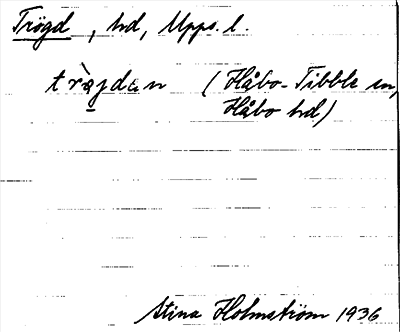 Trögd, hd, Upps. l.
trò̱jdɛn (Håbo-Tibble sn,
Håbo hd)
Stina Holmström 1936